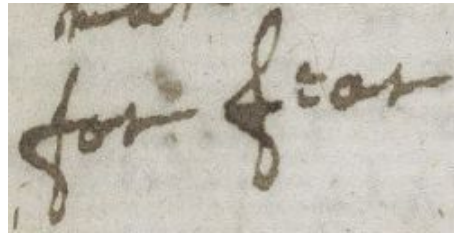 for fear